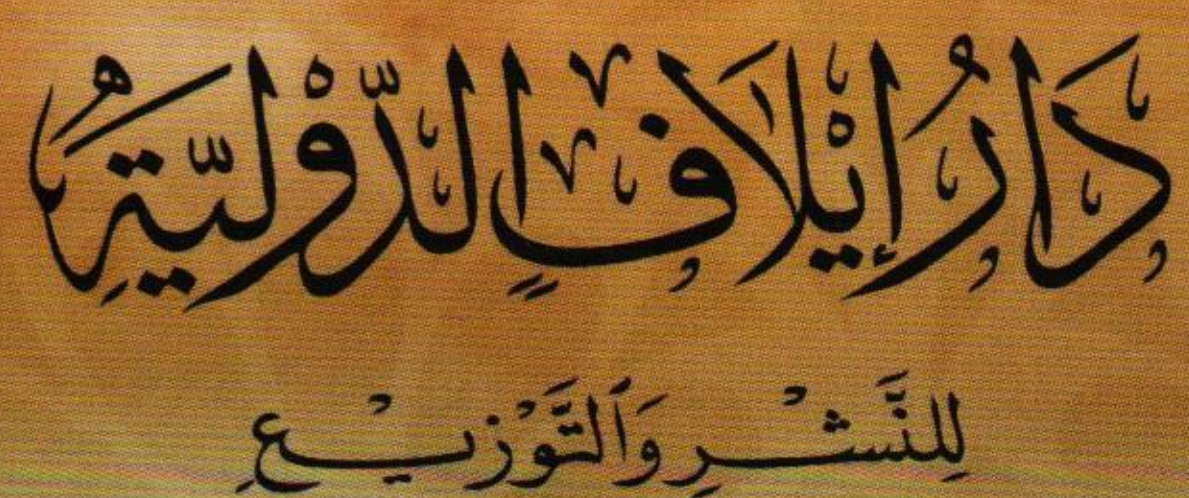 دَارُ إِيْلَافٍ الدّوْليّةُِ
لِلنَّشْرِ وَٱلتَّوْزِيْعِ